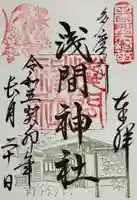 奉拝
多摩川
浅間神社
令和五癸卯年
長月二十日